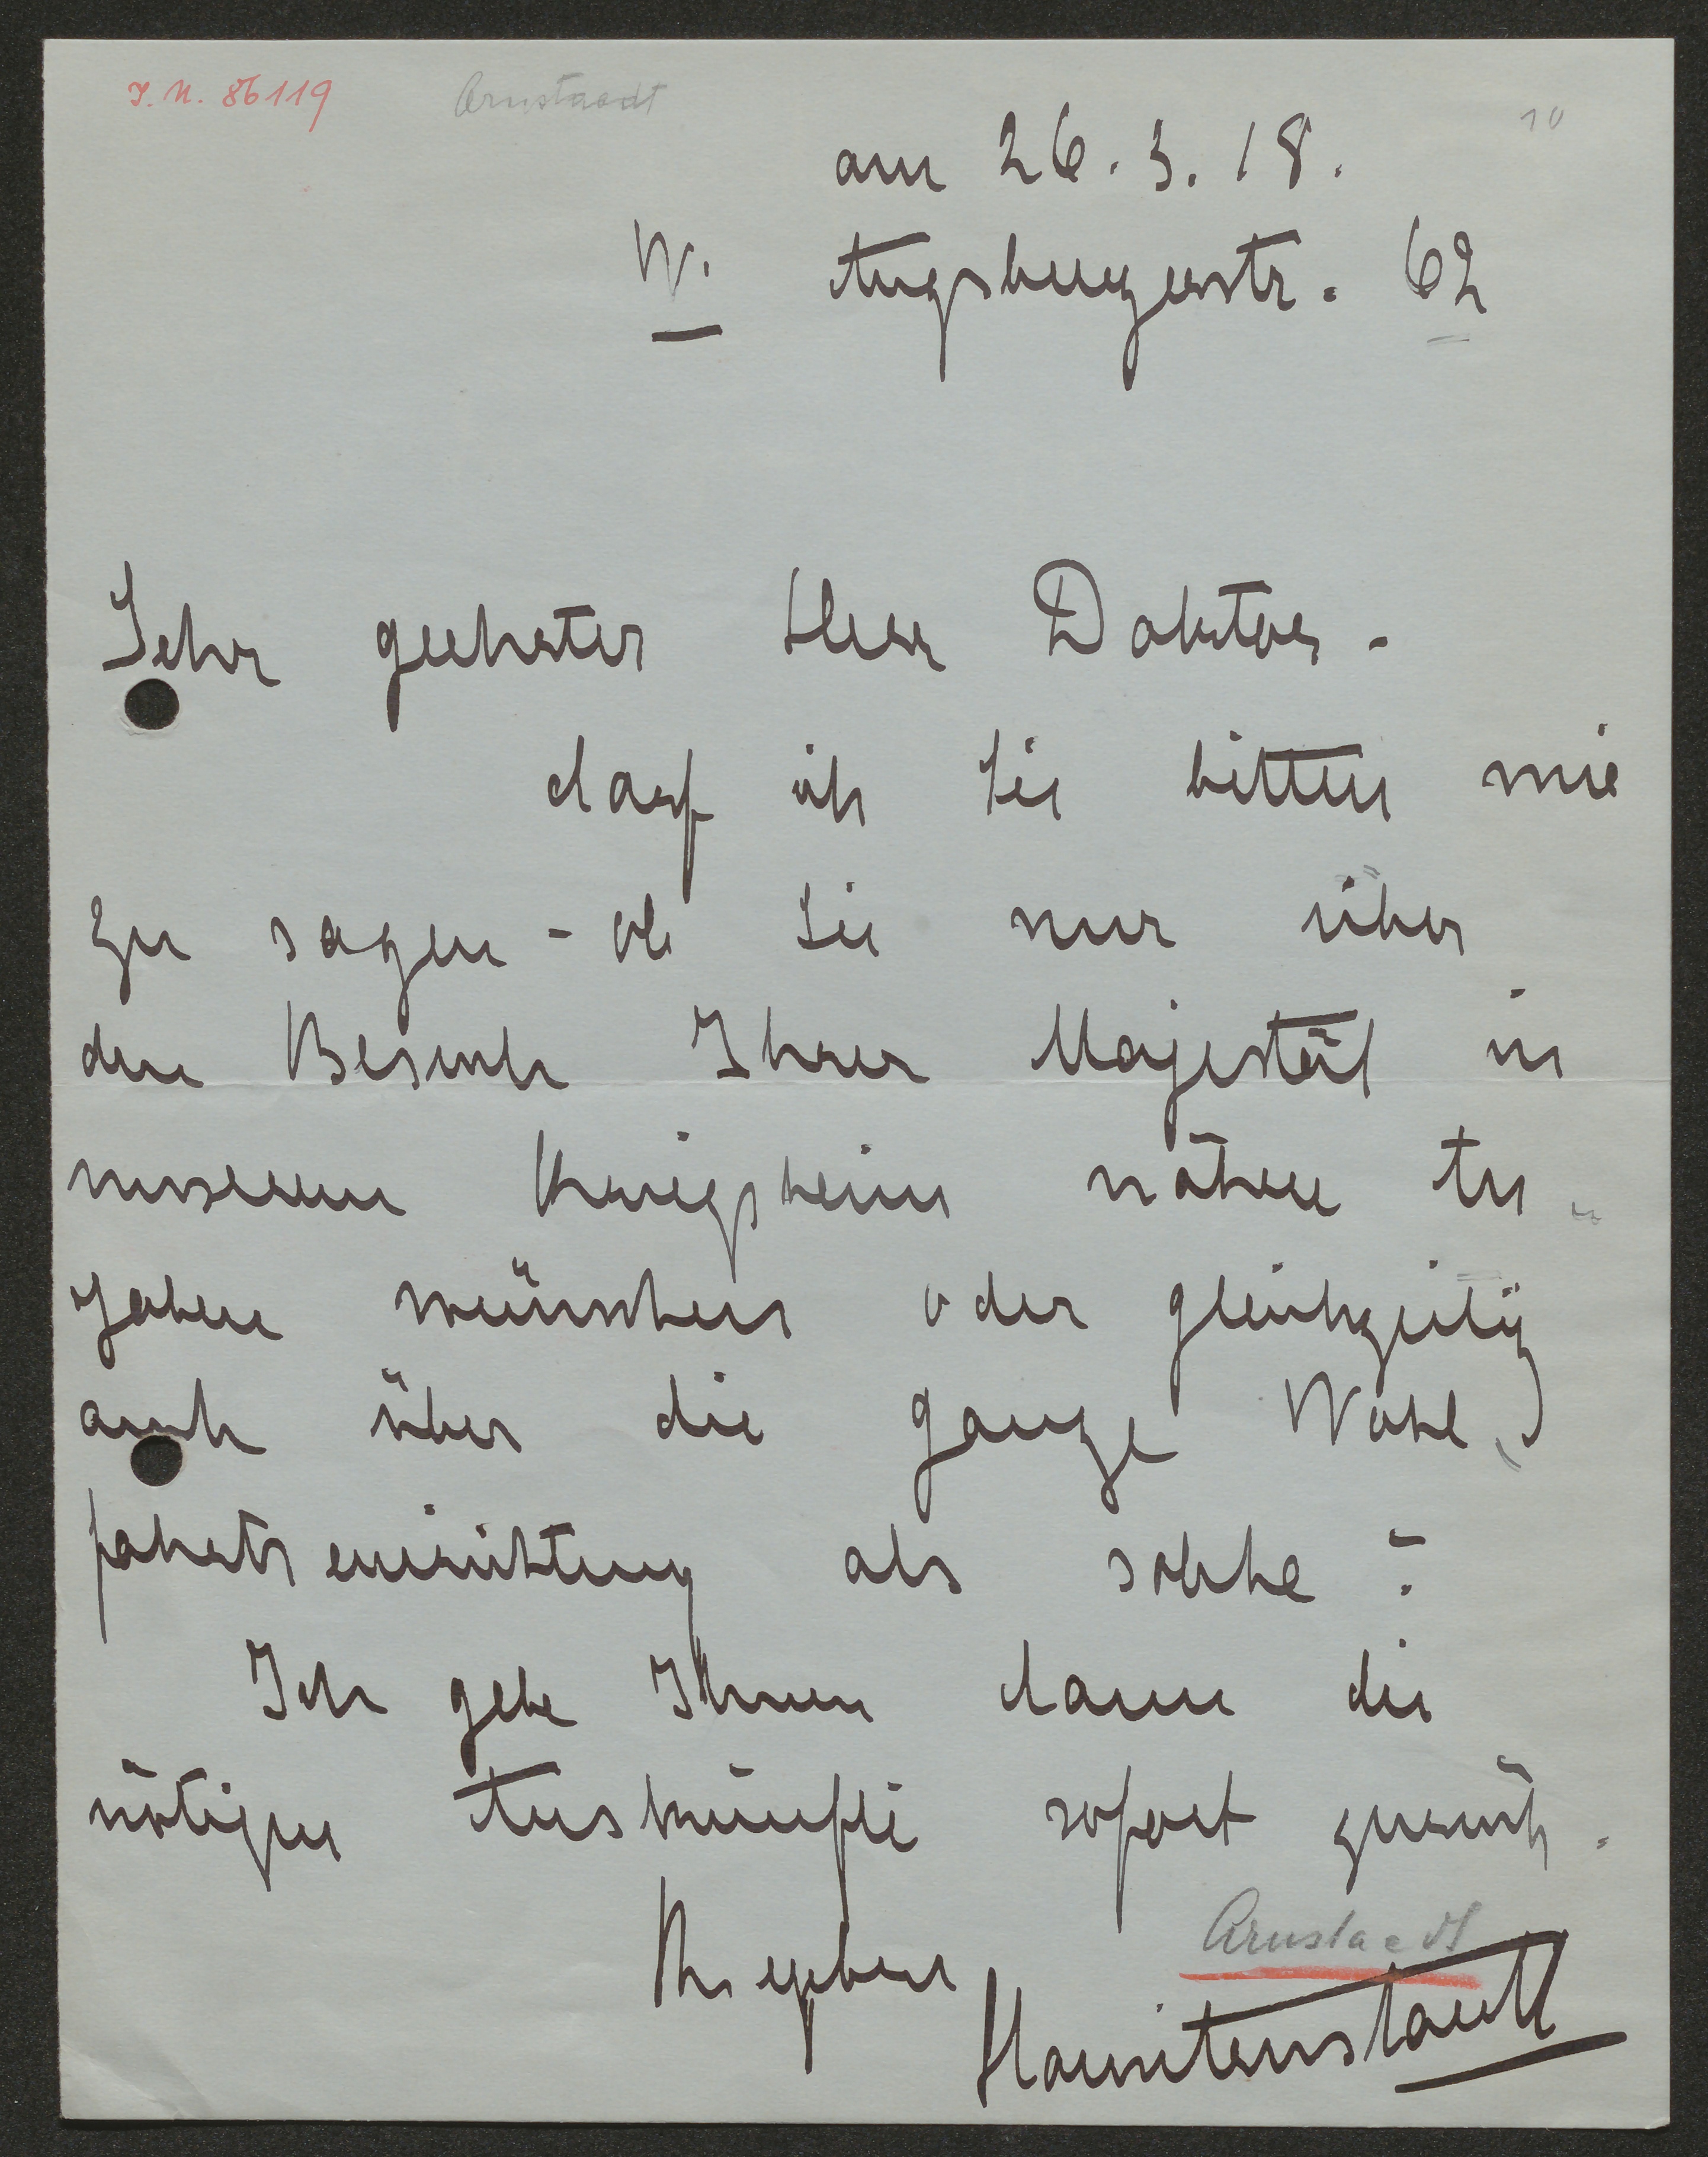 I. N. 86119 Arnstaedt 10
am 26. 3. 18.
W. Augsburgerstr. 62
Sehr geehrter Herr Doktor.
darf ich Sie bitten mir
zu sagen - ob Sie nur über
den Besuch Ihrer Majestät in
unserem Kriegsheim nähere An-
gaben wünschen oder gleichzeitig
auch über die ganze Wohl-
fahrtseinrichtung als solche?
Ich gebe Ihnen dann die
nötigen Auskünfte sofort zurück.
Ergebenst
Arnstaedt